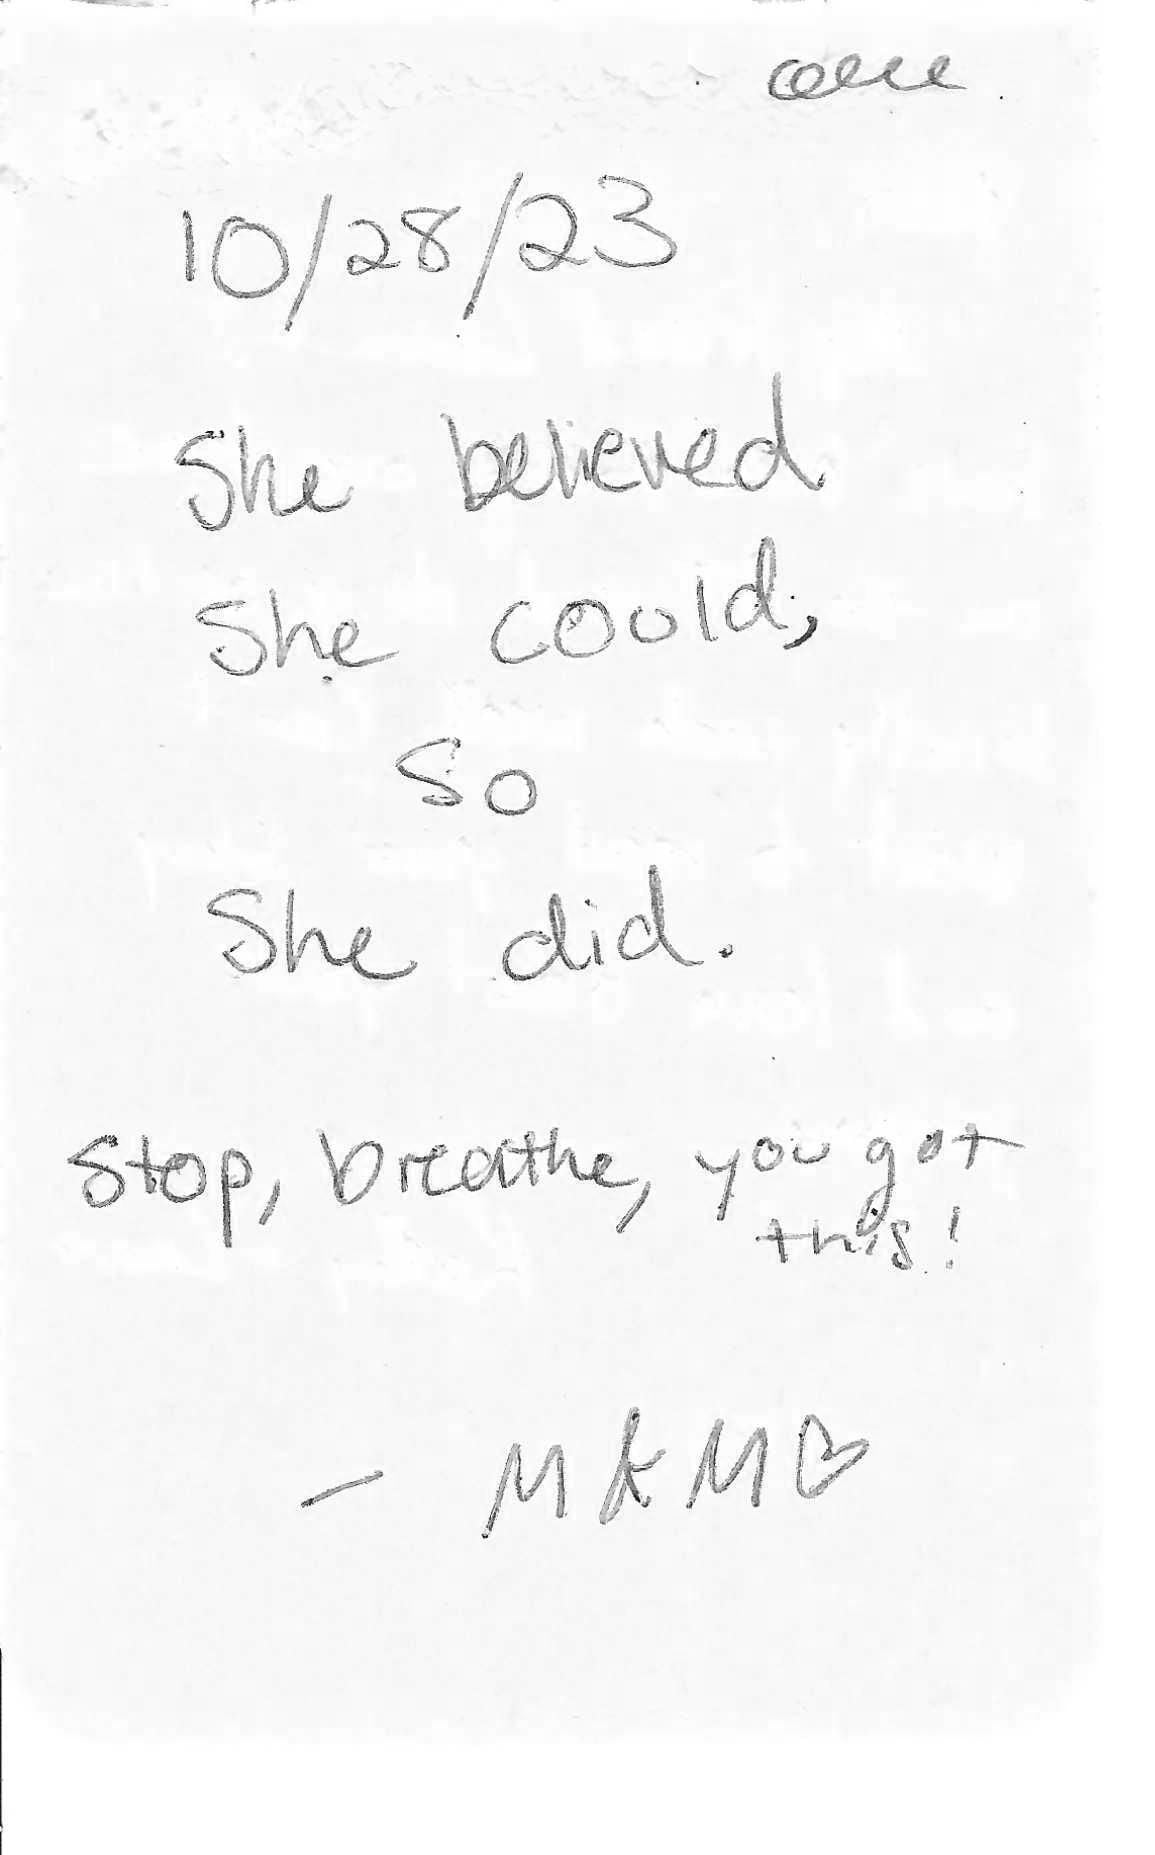 10/28/23
She believed
She could,
So
She did.
Stop, breathe, you got
this!
— M & M ♡